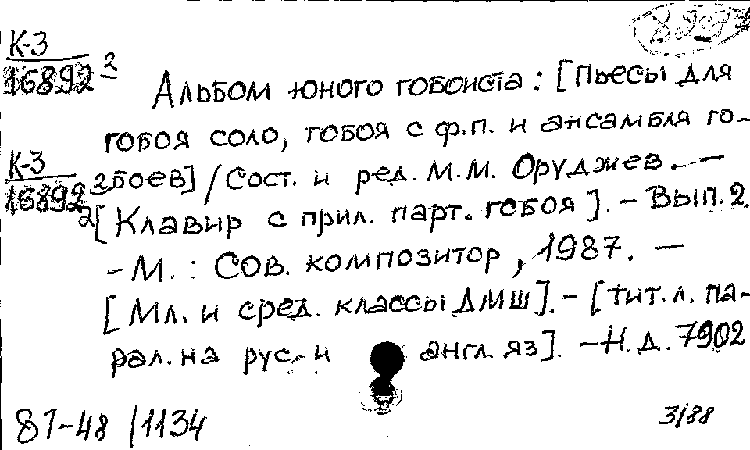 К-3
16892 2
Альбом юного гобоиста: [Пьесы для
гобоя соло, гобоя с ф.п. и ансамбля го-
К-3
16892 2
боев] / Сост. и ред. М.М. Оруджев. —
[Клавир с прил. парт. гобоя]. - Вып. 2.
- М. : Сов. композитор, 1987. —
[Мл. и сред. классы ДМШ]. - [Тит. л. па-
рал. на рус. и англ. яз]. - Н.д. 7902
87-48 / 1134
3/88